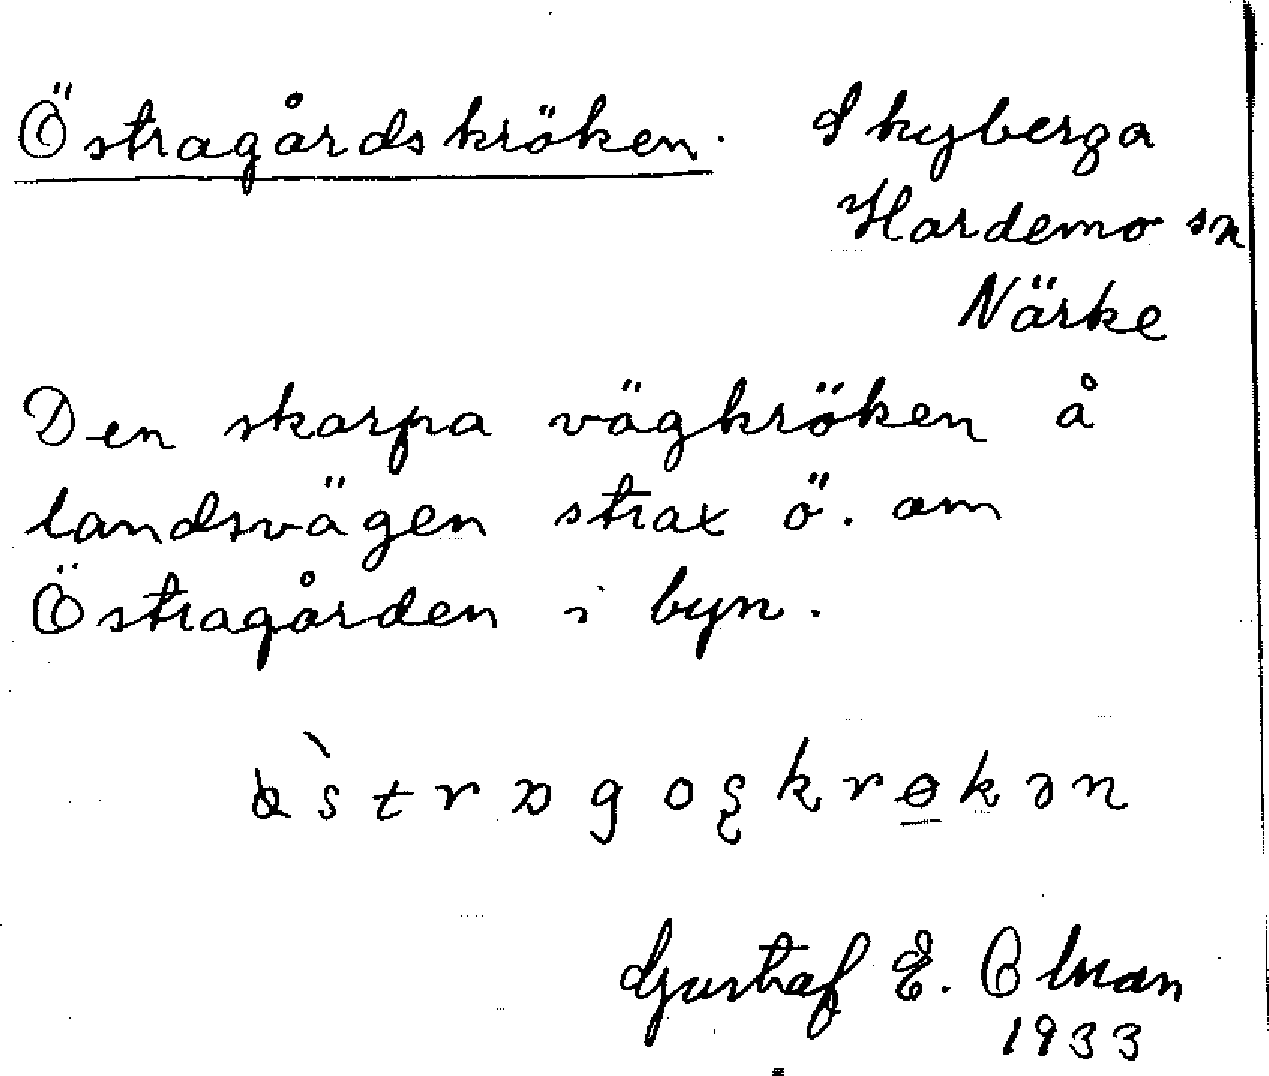 Östragårdskröken. Skyberga
Hardemo sn
Närke
Den skarpa vägkröken å
landsvägen strax ö. om
Östragården i byn.
Gustaf E. Olman
1933